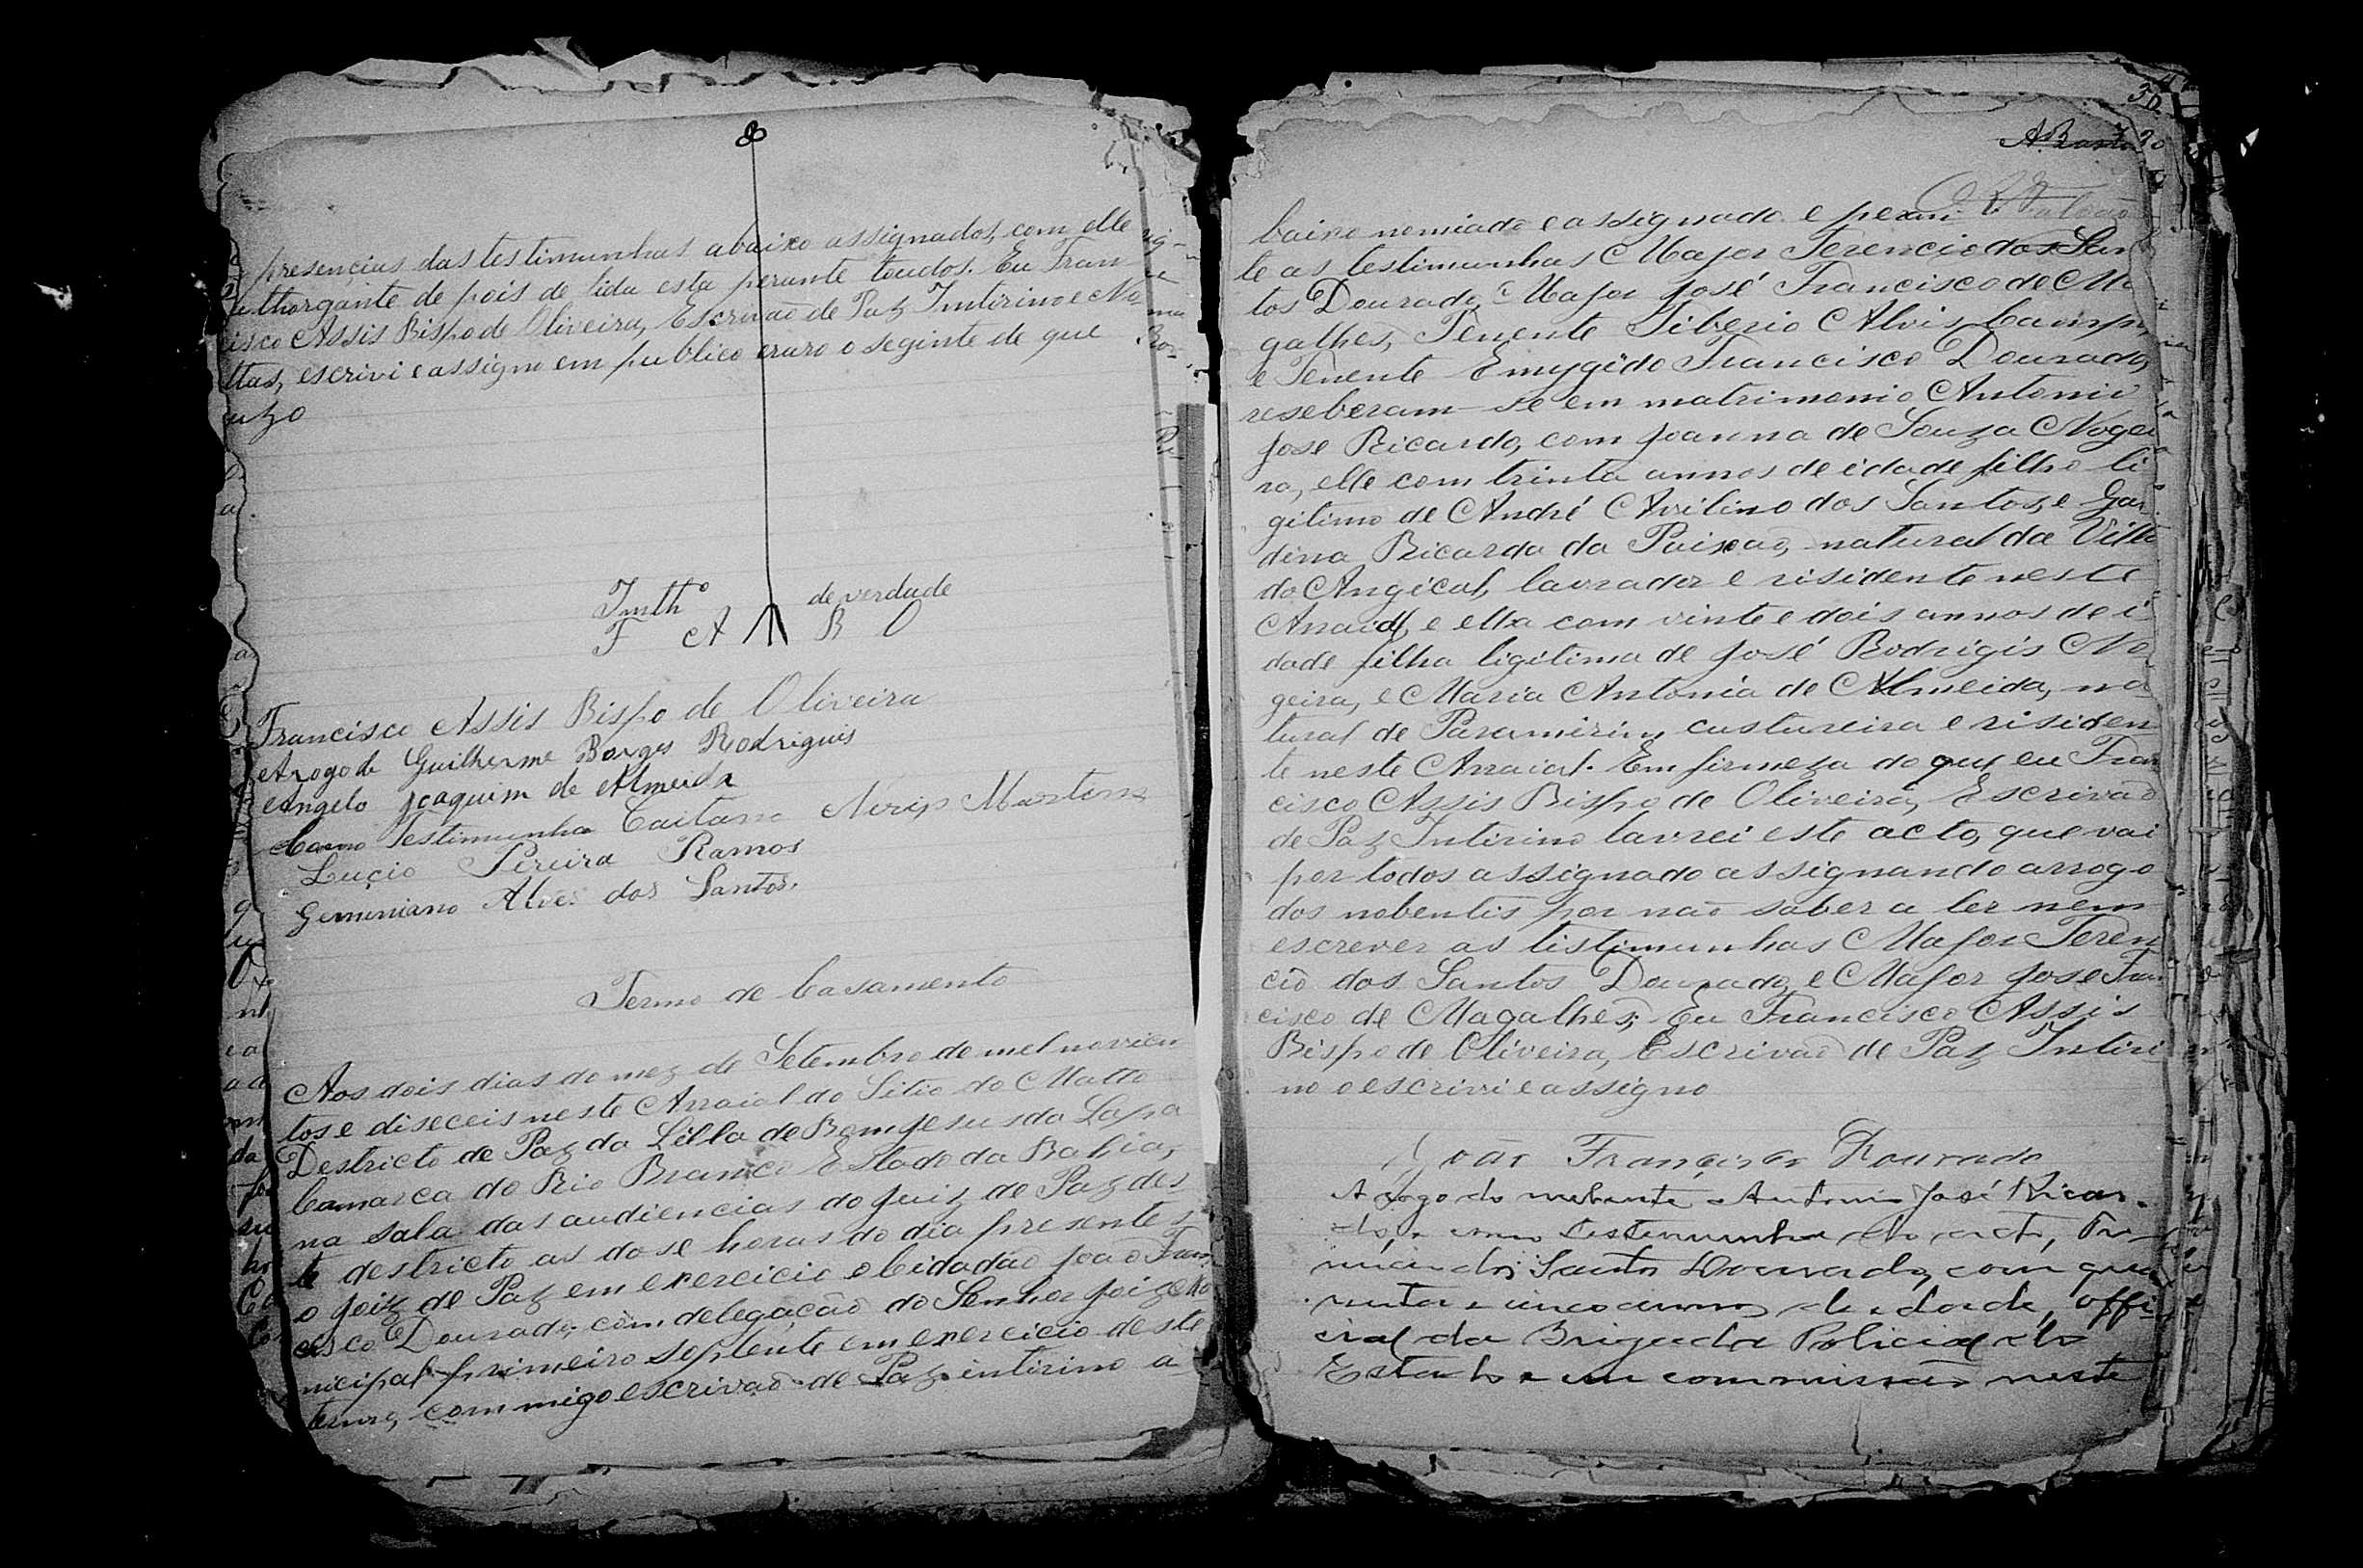 presencias das testimunhas abaixo assignados, com elle
uthorgante de pois de lida esta perante toudos. Eu Fran
isco Assis Bispo de Oliveira, Escrivaõ de Paz Imtirino e No
ttas, escrivi e assigno em publico eraro o seginte de que
uzo
Imthº de verdade
F A B O
Francisco Assis Bispo de Oliveira
Arogo de Guilherme Borges Rodriguis
Angelo Joaquim de Almeida
Como Testimunha Caitano Martins
Lucio Pereira Ramos
Geminiano Alves dos Santos.
Termo de Casamento
Aos dois dias do mez de Setembro de mel novicen
tos e diseceis neste Arraial do Sitio do Matto
Destricto de Paz da Villa de Bom Jesus da Lapa
Camarca do Rio Branco Estado da Bahia,
na sala das audiencias do Juiz de Paz des
te destricto as dose horas do dia presentes
o Joiz de Paz em exercicio o Cidadão João Fran
cisco Dourado, com delegação do Senhor Joiz Mo
nicipal primeiro soplente em exercicio deste
termo, com migo escrivaõ de Paz intirino a
30
baixo nomiado e assignado e peran
te as testimunhas Major Terencio dos San
tos Dourado, Major José Francisco de Ma
galhes, Tenente Tiberio Alvis Camp
e Tenente Emygdio Francisco Dourado,
reseberam-se em matrimonio Antonio
Jose Ricardo, com Joanna de Souza Nogei
ra, elle com trinta annos de idade filho li
gitimo de André Avilino dos Santos, e Gar
dina Ricarda da Paixaõ, natural da Villa
do Angical, lavrador e risidente neste
Arraial, e ella com vinte e dois annos de i
dade filha ligitima de José Rodrigis No
geira, e Maria Antonia de Almeida, na
tural de Paramirim, custureira e risiden
te neste Arraial. Em firmeza do que eu Fran
cisco Assis Bispo de Oliveira, Escrivaõ
de Paz Intirino lavrei este acto, que vai
por todos assignado assignando arrogo
dos nobentis por naõ saber a ler nem
escrever as tistimunhas Major Teren
cio dos Santos Dourado, e Major Jose Fran
cisco de Magalhes; Eu Francisco Assis
Bispo de Oliveira, Escrivaõ de Paz Intiri
no o escrivi e assigno
João Francisco Dourado
A rogo do nubente Antonio José Ricar-
do, e como testemunha do acto, Te-
rencio dos Santos Dourado, com qua
renta e cinco annos de edade, offi-
cial da Brigada Policial do
Estado e em commissão neste